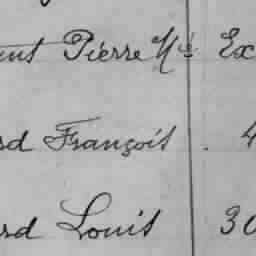 ent Pierre Md Ex
rd François . 4
rd Louis 30